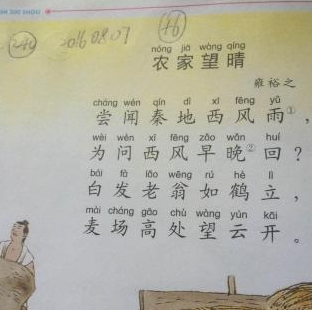 农家望晴
nóng jiā wàng qíng
雍裕之
cháng wén qín dì xī fēng yǔ
尝闻秦地西风雨①，
wèi wèn xī fēng zǎo wǎn huí
为问西风早晚②回？
bái fà lǎo wēng rú hè lì
白发老翁如鹤立，
mài cháng gāo chù wàng yún kāi
麦场高处望云开。